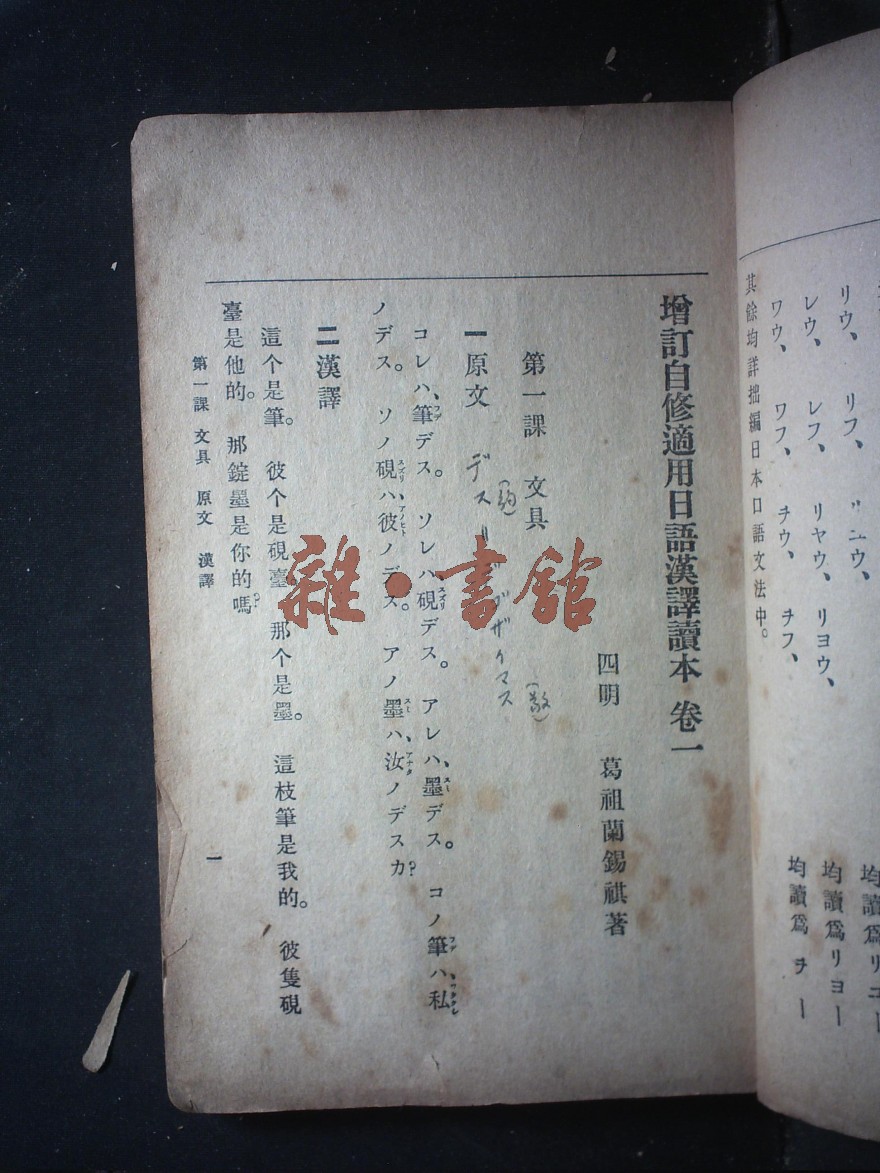 リウ、　リフ、　リユウ、
レウ、　レフ、　リヤウ、リヨウ、
ワウ、　ワフ、　チウ、　チフ、
均讀爲リユー
均讀爲リヨー
均讀爲チー
其餘均詳拙編日本口語文法中。
增訂自修適用日語漢譯讀本 卷一
四明　葛祖蘭錫祺著
第一課　文具
一原文
デス
(約)
ゴザイマス
(敬)
コレハ、筆デス。ソレハ、硯デス。アレハ、墨デス。コノ筆ハ、私
ノデス。ソノ硯ハ、彼ノデス。アノ墨ハ、汝ノデスカ?
二漢譯
這个是筆。彼个是硯臺。那个是墨。這枝筆是我的。彼隻硯
臺是他的。那錠墨是你的嗎?
第一課 文具 原文 漢譯
一
雜·書館